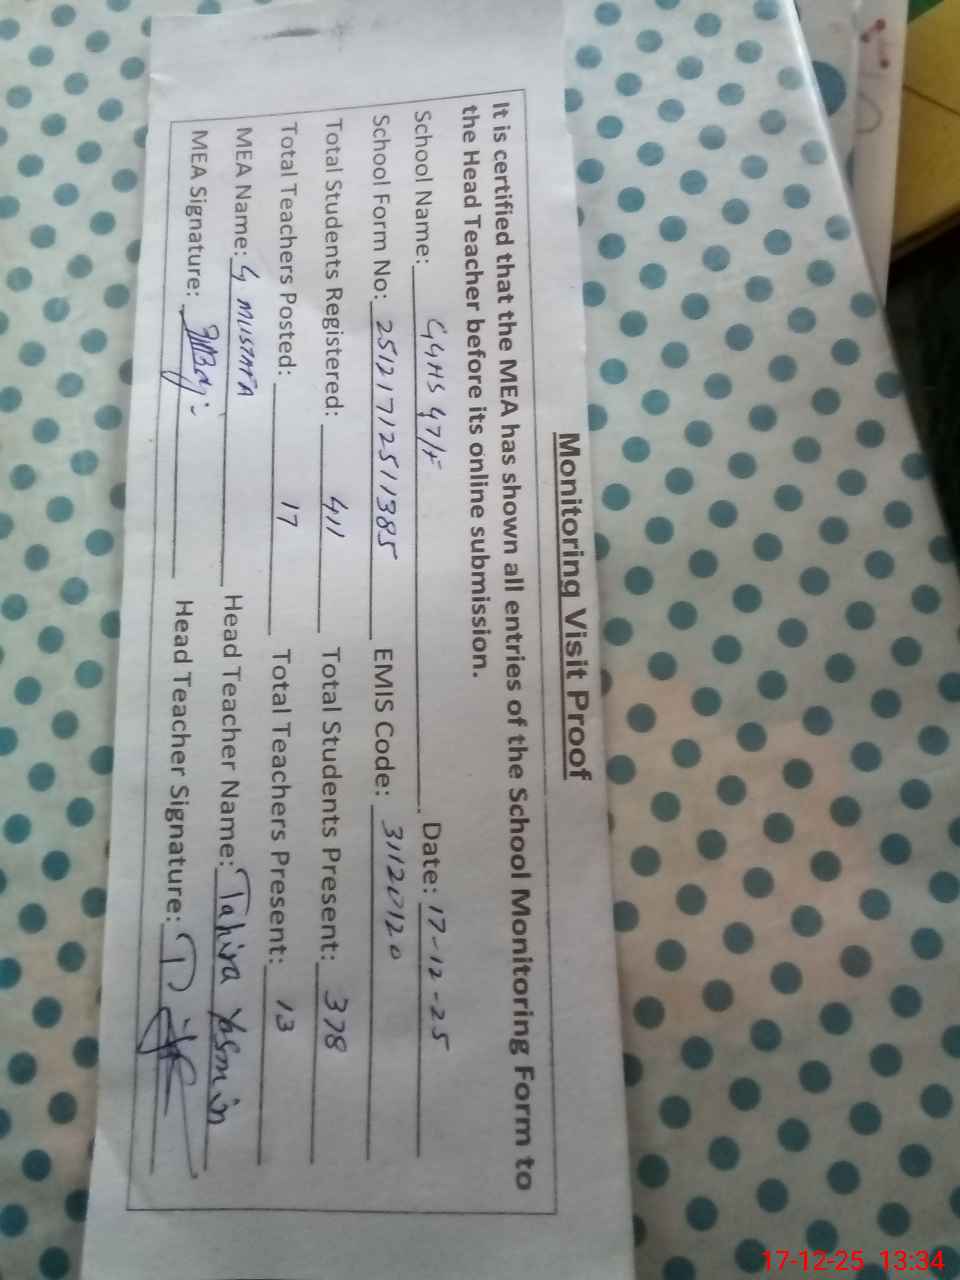 Monitoring Visit Proof
It is certified that the MEA has shown all entries of the School Monitoring Form to
the Head Teacher before its online submission.
School Name: GGHS 47/F Date: 17-12-25
School Form No: 25121712511385 EMIS Code: 31120120
Total Students Registered: 411 Total Students Present: 378
Total Teachers Posted: 17 Total Teachers Present: 13
MEA Name: G MUSTAFA Head Teacher Name: Tahira Yasmin
MEA Signature: Head Teacher Signature:
17-12-25 13:34